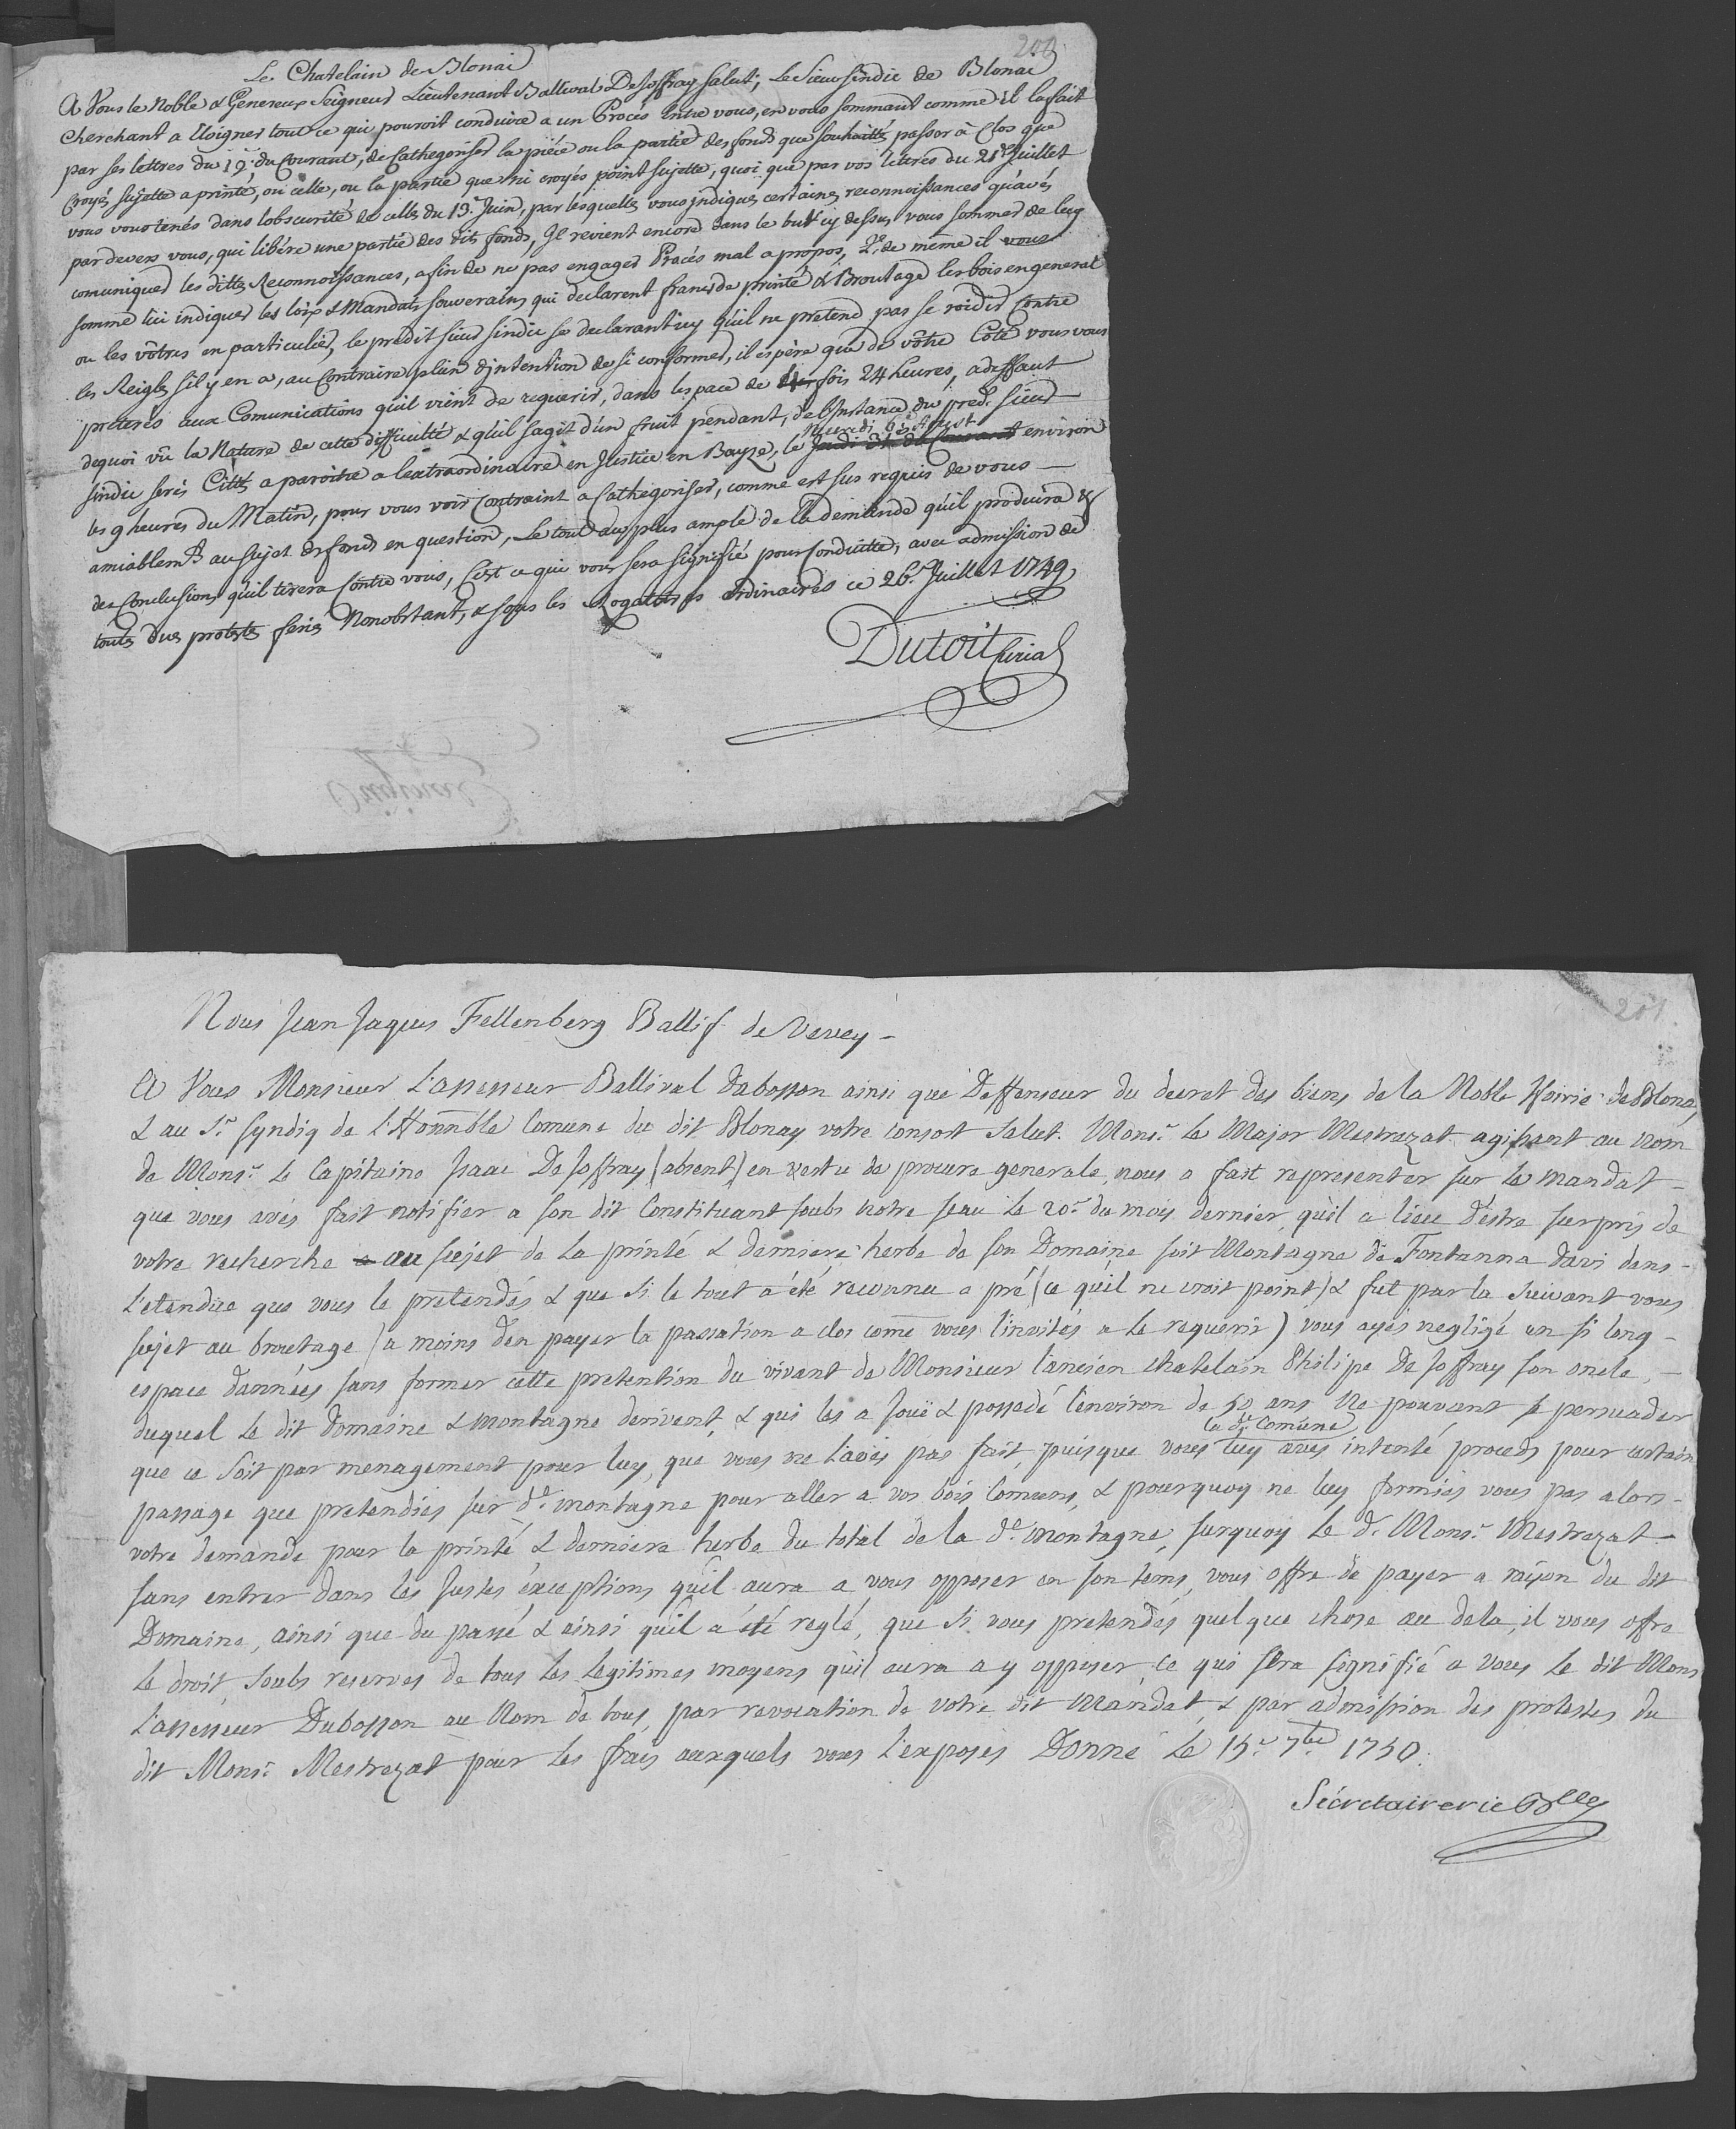 200.
Le Chatelain de Blonai
A Vous le Noble & Genereux Seigneur Lieutenant Ballival DeJoffrey Salut; Le Sieur Sindic de Blonai
Cherchant a Eloigner tout ce qui pouroit conduire a un Procés Entre vous, en vous sommant comme il la fait
par ses lettres du 19e. du Courant, de Cathegoriser la piéce ou la partie des fonds que souhaittés passer à Clos que
Croyés sujette a printé, ou celle, ou la partie que ni croyés point sujette, quoi que par vos lettres du 21e Juillet
vous vous tenés dans lobscurité de celles du 13e. Juin, par lesquelles vous indiques certaines reconnoissances qu'avés
par devers vous, qui libére une partie des dits fonds, Il revient encore dans le but cy dessus, vous sommer de luy
comuniquer les dittes Reconnoissances, afin de ne pas engager Procés mal a propos, 2e. de même il vous
somme lui indiquer les loix & Mandats souverains qui declarent francs de printé & Broutage les bois en general
ou les vôtres en particulier, le predit sieur sindic se declarant icy qu'il ne pretend pas se roidir Contre
les Reigles s'il y en a, au Contraire plein d'intention de si conformer, il espère que de vôtre Côté vous vous
preterés aux Comunications qu'il vient de requerir, dans lespace de fois 24 heures, a deffaut
dequoi vû la Nature de cette difficulté & qu'il sagit d'un fruit pendant, de l'Instance du pred. sieur
Mecredi 6e Aoust
sindic serés Citté a paroitre a lextraordinaire en Justice en Bayze, le Jeudi 31e du Courant environ
les 9 heures du Matin, pour vous voir Contraint a Cathegoriser, comme est sus requis de vous
amiablemt. au sujet des fonds en question, Le tout au plus ample de la demande qu'il produira &
des Conclusions qu'il tirera Contre vous, C'est ce qui vous sera signifié pour Conduitte, avec admission de
toutes dues protestes feries Nonobstant, & sous les Rogatoires ordinaires ce 26e. Juillet 1749.
Dutoit Curial
201.
Nous Jean Jaques Fellenberg Ballif de Vevey
A Vous Monsieur L'assesseur Ballival Dubosson ainsi que Deffenseur du decret des biens de la Noble Hoirie de Blonay
& au Sr. Syndiq de L'Honnble Comune du dit Blonay votre consort Salut. Monsr. Le Major Mestrezat agissant au nom
de Monsr. Le Capitaine Isaac De Joffrey (absent) en vertu de procure generale, nous a fait representer sur le mandat
que vous avés fait notifier a son dit Constituant soubs notre seau le 20e. du mois dernier, qu'il a lieu d'être surpris de
votre recherche au sujet de la printé & derniere herbe de son Domaine soit Montagne de Fontanna Davi dans
L'etendue que vous le pretendés & que si le tout a été reconnu a pré (ce qu'il ne croit point) & fut par la suivant vous
sujet au broutage (a moins d'en payer la passation a clos come vous l'invités a le requerir) vous ayés negligé un si long
espace d'années sans former cette pretention du vivant de Monsieur l'ancien Chatelain Philipe De Joffrey son oncle,
duquel Le dit Domaine & montagne derivent, & qui les a jouï & possedé l'environ de 50 ans Ne pouvant se persuader
la de. Comune
que ce soit par menagement pour luy, que vous ne l'avés pas fait, puisque vous luy avés intenté proceds pour certain
passage que pretendiés sur de. montagne pour aller a vos bois Comuns, & pourquoy ne luy formiés vous pas alors
votre demande pour la printé & derniere herbe du total de la de. montagne, surquoy Le d. Monsr. Mestrezat
sans entrer dans les Justes exceptions qu'il aura a vous opposer en son tems, vous offre de payer a raison du dit
Domaine, ainsi que du passé & ainsi qu'il a été reglé, que si vous pretendés quelque chose au dela, il vous offre
Le droit, soubs reserves de tous les Legitimes moyens qu'il aura a y opposer, Ce qui sera signifié a Vous Le dit Mons
L'assesseur Dubosson au Nom de tous, par revocation de votre dit Mandat, & par admission des protestes du
dit Monsr. Mestrezat pour les frais auxquels vous l'exposés Donné Le 15e. 7bre 1750.
Sécretairerie Blle